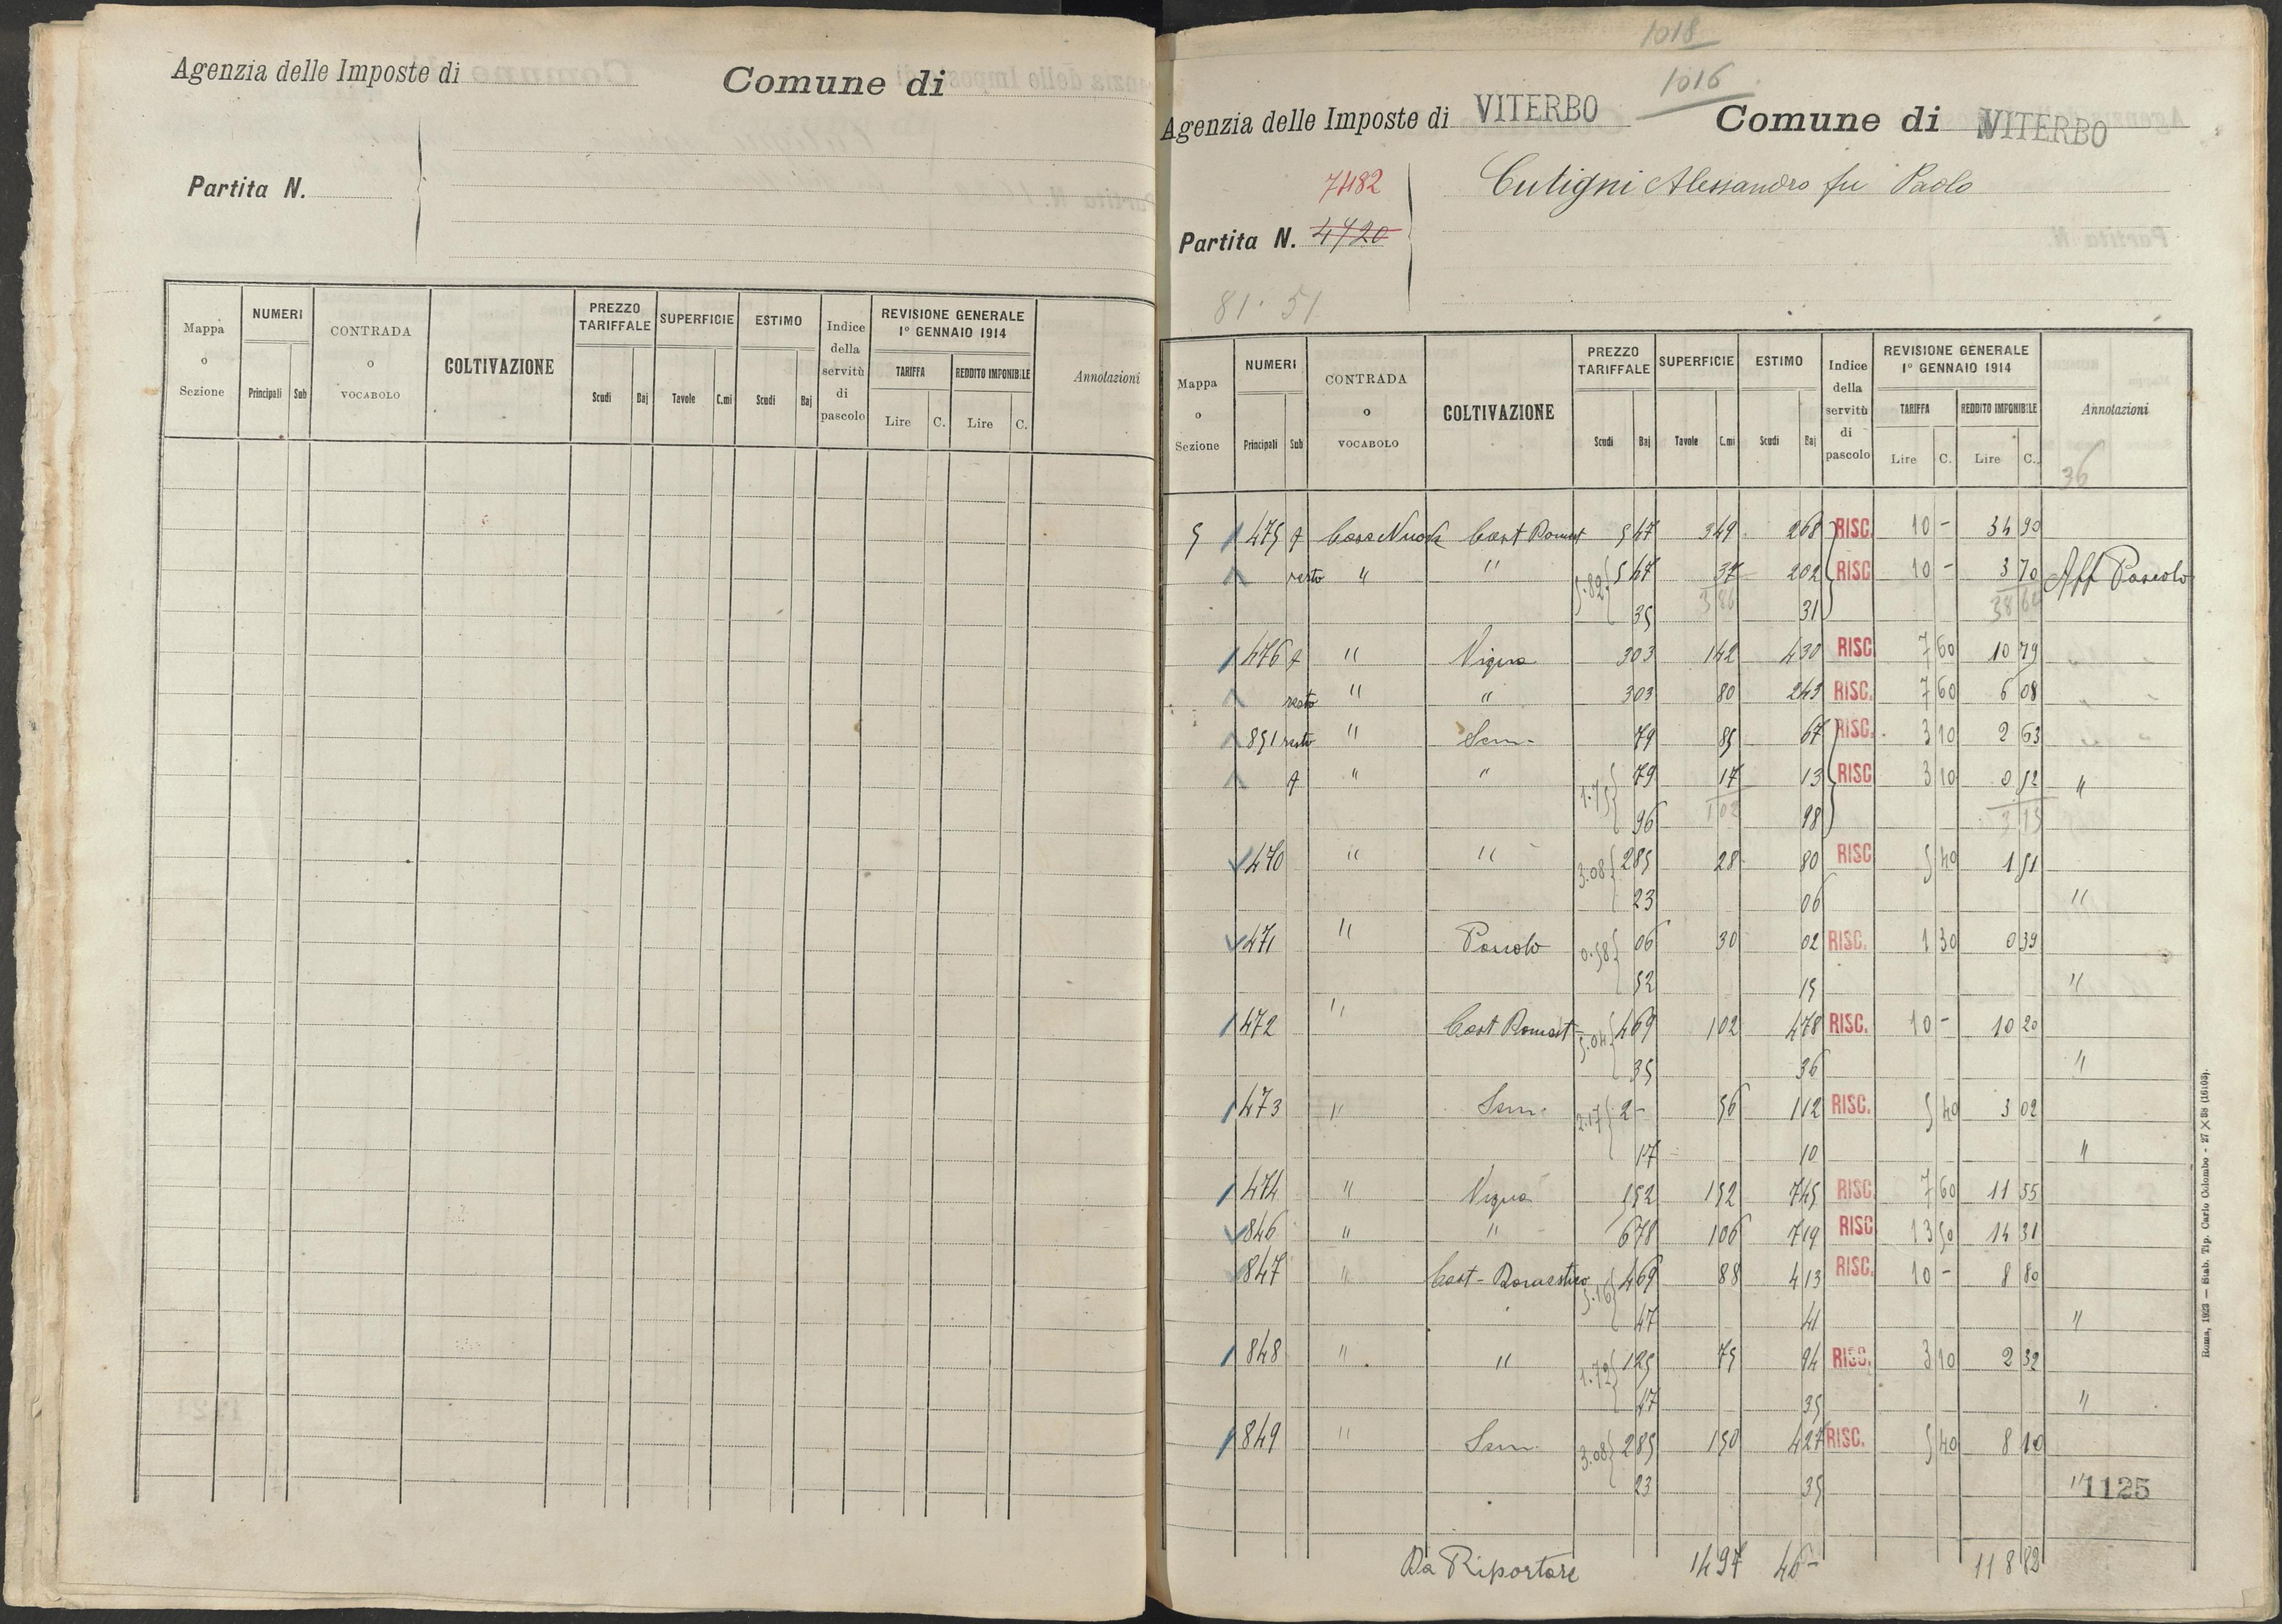 Agenzia delle Imposte di Comune di
Partita N.
Mappa o Sezione
NUMERI
Principali Sub
CONTRADA o VOCABOLO
COLTIVAZIONE
PREZZO TARIFFALE
Scudi Baj
SUPERFICIE
Tavole C.mi
ESTIMO
Scudi Baj
Indice della servitù di pascolo
REVISIONE GENERALE 1º GENNAIO 1914
TARIFFA REDDITO IMPONIBILE
Lire C. Lire C.
Annotazioni
1018
1016
Agenzia delle Imposte di VITERBO Comune di VITERBO
7482
Partita N. 4720
Cutigni Alessandro fu Paolo
81. 51
Mappa o Sezione
NUMERI
Principali Sub
CONTRADA o VOCABOLO
COLTIVAZIONE
PREZZO TARIFFALE
Scudi Baj
SUPERFICIE
Tavole C.mi
ESTIMO
Scudi Baj
Indice della servitù di pascolo
REVISIONE GENERALE 1º GENNAIO 1914
TARIFFA REDDITO IMPONIBILE
Lire C. Lire C.
Annotazioni
36
5 475 Cast Domest 547 349 268 RISC. 10 - 34 90
resto " " 5.82 547 37 202 RISC 10 - 3 70 Aff Pascolo
35 386 31 38 60
476 " Vigna 303 142 430 RISC 7 60 10 79
resto " " 303 80 243 RISC. 7 60 6 08
851 resto " Sem 79 85 67 RISC. 3 10 2 63
" " 1.75 79 17 13 RISC 3 10 0 52 "
96 102 98 3 15
470 " " 3.08 285 28 80 RISC 5 40 1 51
23 06 "
471 " Pascolo 0.58 06 30 02 RISC. 1 30 0 39
52 15 "
472 " Cast Domest 5.04 469 102 478 RISC. 10 - 10 20
35 36 "
473 " Sem. 2.17 2 - 56 112 RISC. 5 40 3 02
17 10 "
474 " Vigna 152 745 RISC 7 60 11 55
846 " " 678 106 719 RISC 13 50 14 31
847 " Cast - Domestico 5.16 469 88 413 RISC. 10 - 8 80
47 41 "
848 " " 1.72 125 75 94 RISC. 3 10 2 32
47 35 "
849 " Sem. 3.08 285 150 427 RISC. 5 40 8 10
23 35 " 1125
Da Riportare 1497 46 - 118 82
Roma, 1923 — Stab. Tip. Carlo Colombo - 27 × 38 (16103).